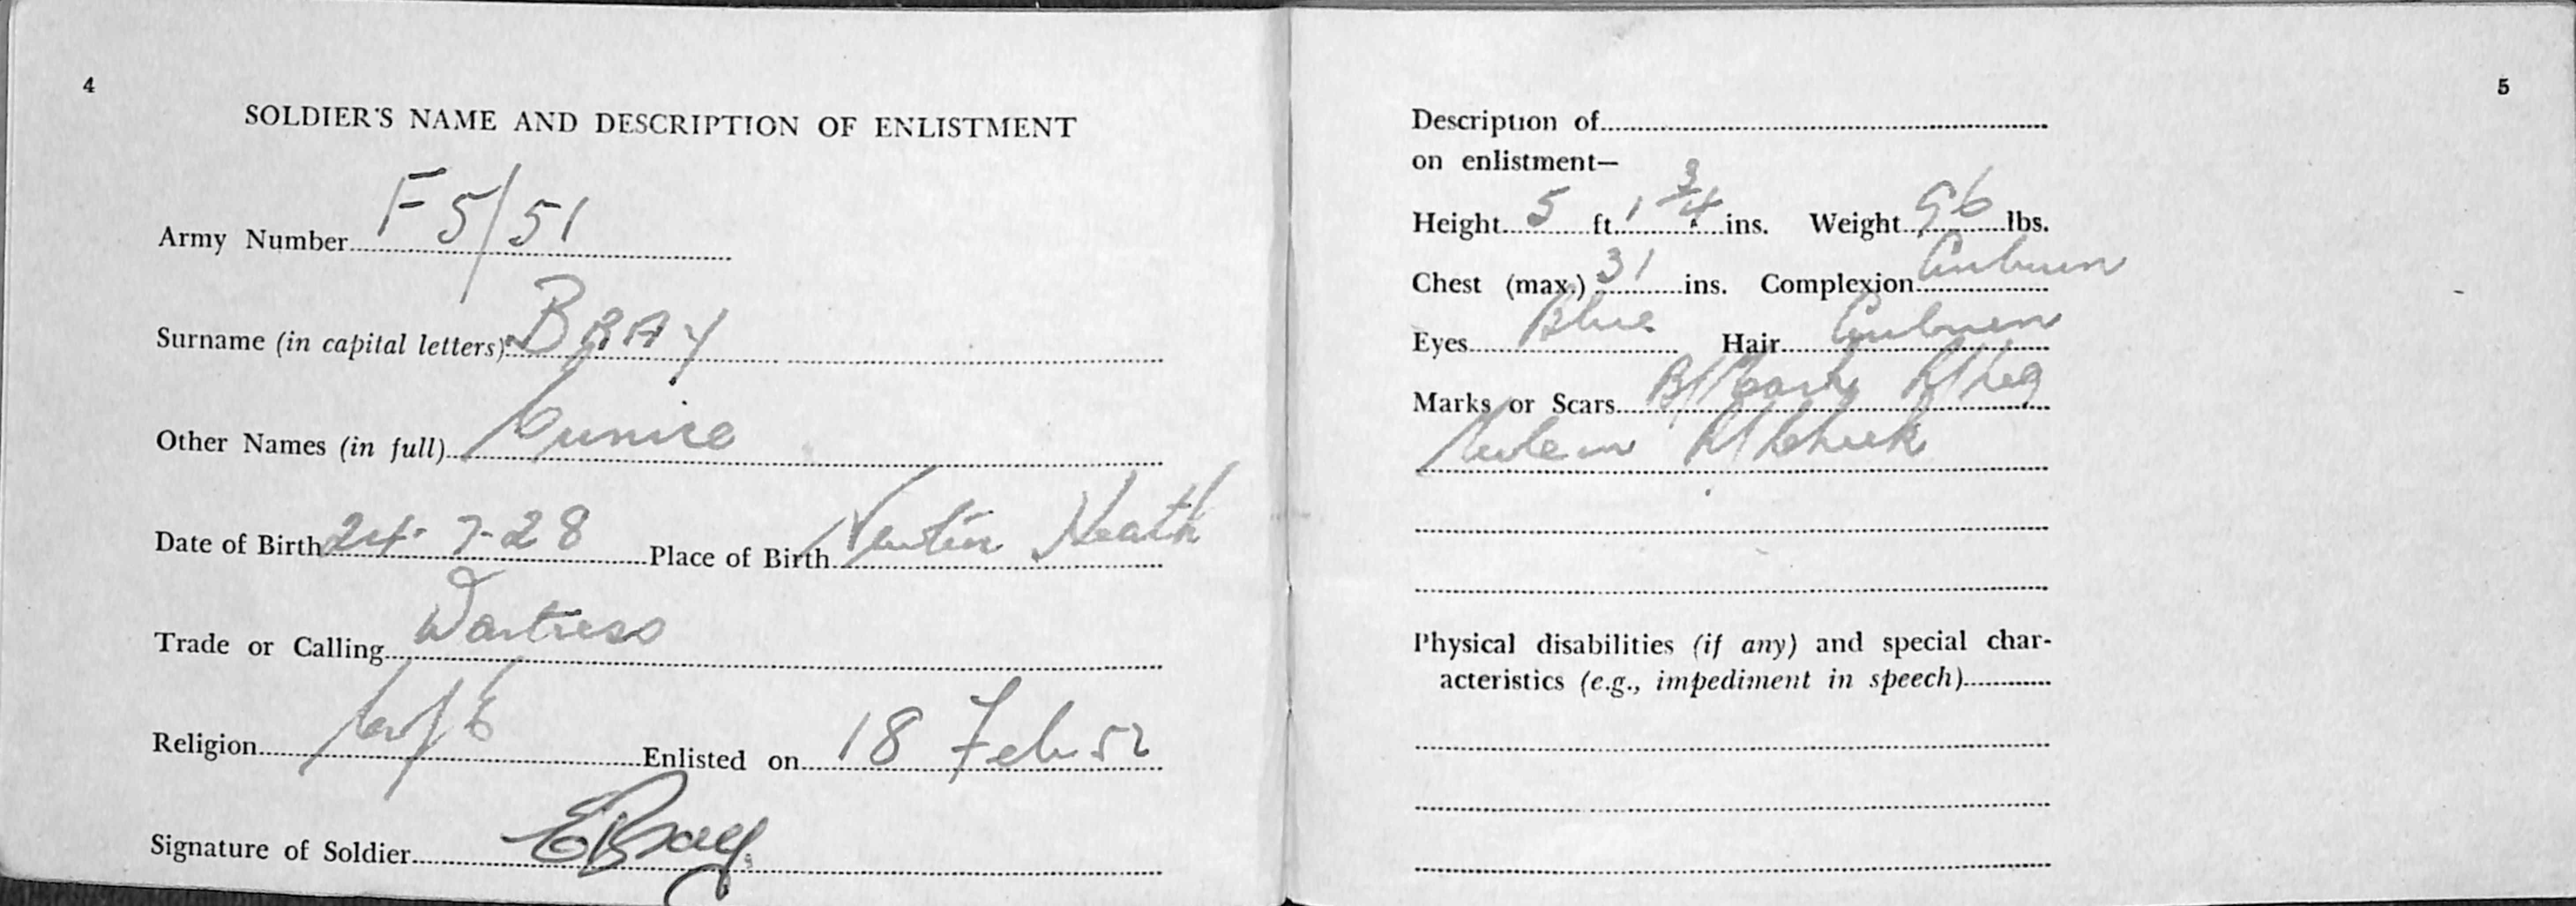 4
SOLDIER'S NAME AND DESCRIPTION OF ENLISTMENT
Army Number F 5/51
Surname (in capital letters) BRAY
Other Names (in full) Eunice
Date of Birth 24-7-28 Place of Birth Newton Heath
Trade or Calling Waitress
Religion C of E Enlisted on 18 Feb 52
Signature of Soldier EBray
5
Description of
on enlistment—
Height 5 ft. 1 3/4 ins. Weight 96 lbs.
Chest (max.) 31 ins. Complexion Auburn
Eyes Blue Hair Auburn
Marks or Scars B/Mark R/Leg
R/Cheek
Physical disabilities (if any) and special char-
acteristics (e.g., impediment in speech)